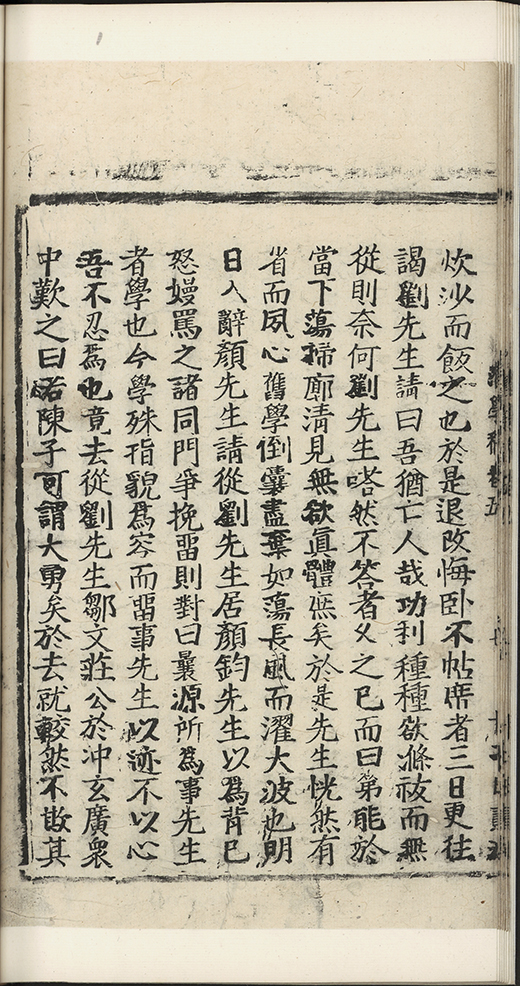 炊沙而飯之也於是退改悔卧不帖席者三日更徃
謁劉先生請曰吾猶亡人哉功利種種欲滌祓而無
從則奈何劉先生嗒然不答者乆之已而曰第能於
當下蕩掃廓清見無欲眞體庶矣於是先生恍然有
省而夙心舊學倒囊盡棄如蕩長風而濯大波也明
日入辭顏先生請從劉先生居顏鈞先生以爲背已
怒嫚罵之諸同門爭挽畱則對曰曩源所爲事先生
者學也今學殊指貌爲容而畱事先生以迹不以心
吾不忍爲也竟去從劉先生鄒文莊公於冲玄廣衆
中歎之曰若陳子可謂大勇矣於去就較然不欺其
學 卷五